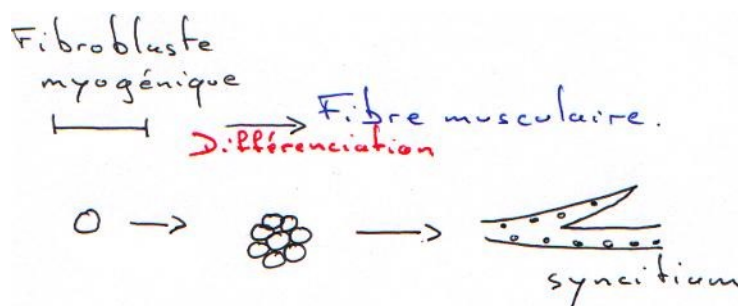 Fibroblaste
myogénique
Fibre musculaire.
Différenciation
syncitium